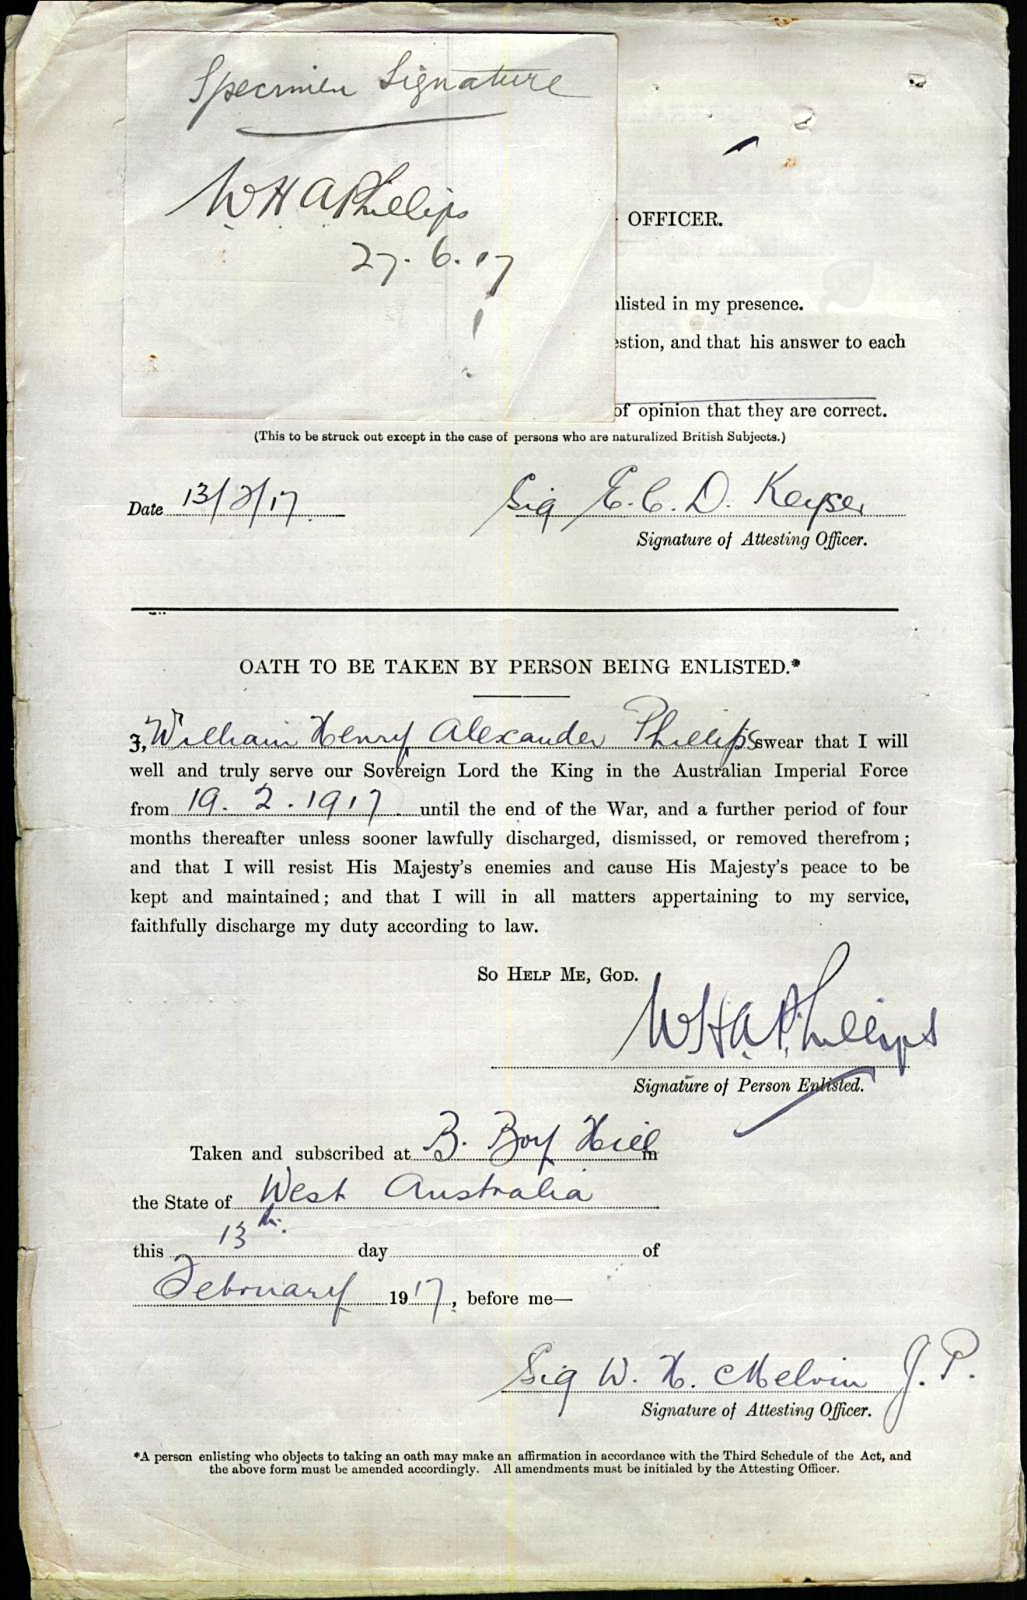 Specimen Signature
W H A Phillips
27. 6. 17
OFFICER.
listed in my presence.
stion, and that his answer to each
of opinion that they are correct.
(This to be struck out except in the case of persons who are naturalized British Subjects.)
Date 13/2/17. Sig E. C. D. Keyser
Signature of Attesting Officer.
OATH TO BE TAKEN BY PERSON BEING ENLISTED.*
I, William Henry Alexander Phillips swear that I will
well and truly serve our Sovereign Lord the King in the Australian Imperial Force
from 19. 2. 1917 until the end of the War, and a further period of four
months thereafter unless sooner lawfully discharged, dismissed, or removed therefrom;
and that I will resist His Majesty's enemies and cause His Majesty's peace to be
kept and maintained; and that I will in all matters appertaining to my service,
faithfully discharge my duty according to law.
So Help Me, God.
W H A Phillips
Signature of Person Enlisted.
Taken and subscribed at B. Boy Hill in
the State of West Australia
this 13th. day of
February 1917, before me—
Sig W. H. Melvin J. P.
Signature of Attesting Officer.
*A person enlisting who objects to taking an oath may make an affirmation in accordance with the Third Schedule of the Act, and
the above form must be amended accordingly. All amendments must be initialed by the Attesting Officer.